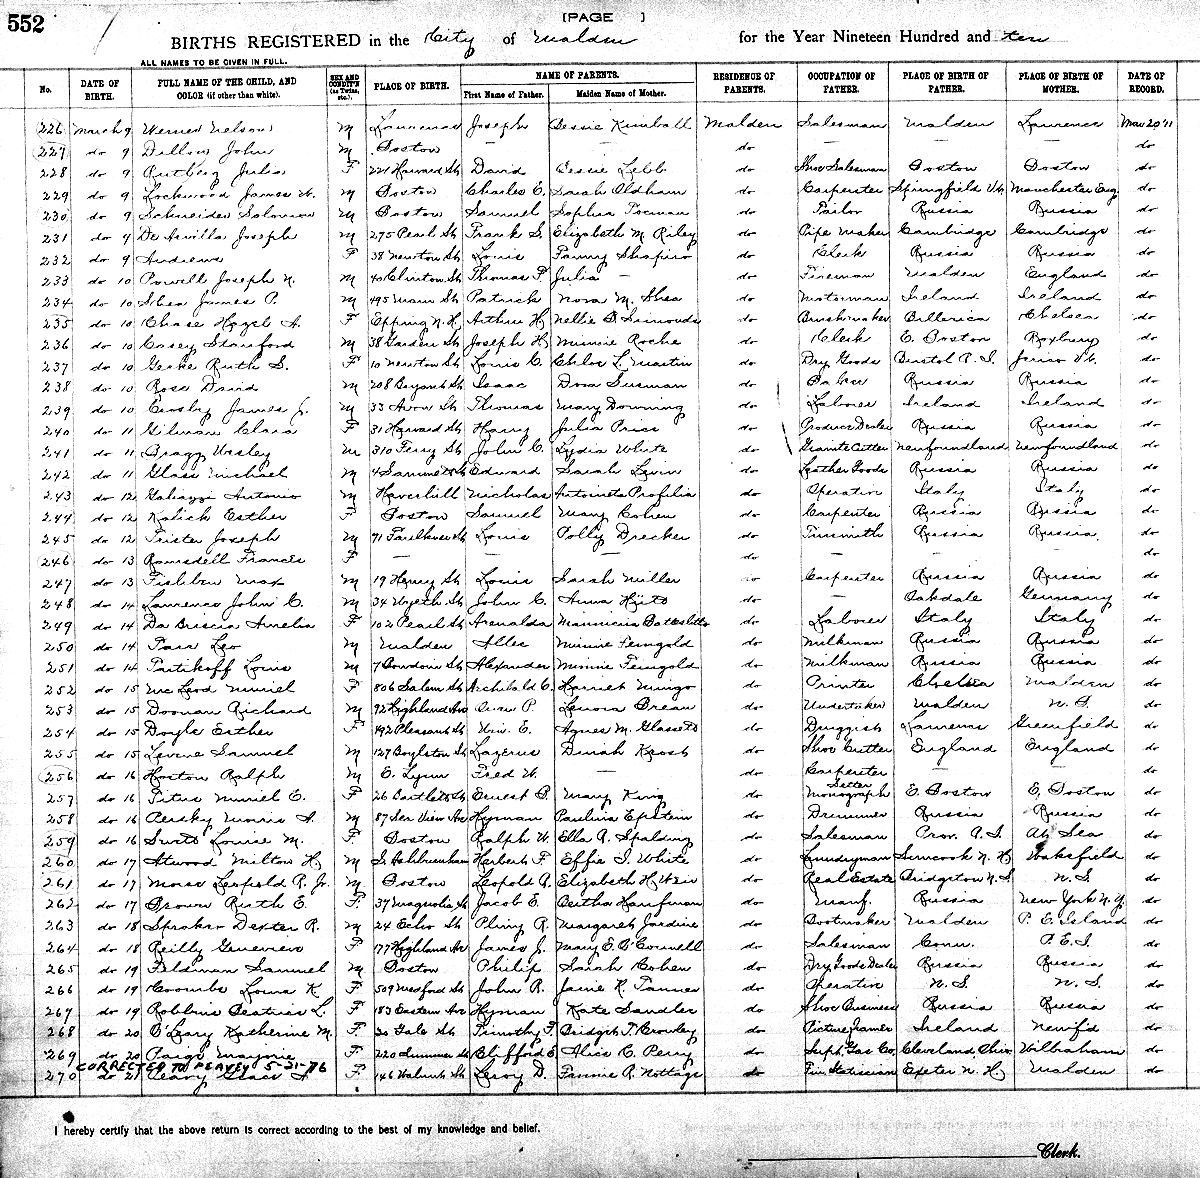 552
[PAGE ]
BIRTHS REGISTERED in the City of Malden for the Year Nineteen Hundred and ten
ALL NAMES TO BE GIVEN IN FULL.
No. DATE OF BIRTH. FULL NAME OF THE CHILD, AND COLOR (if other than white). SEX AND CONDIT'N (as Twins, etc.) PLACE OF BIRTH. NAME OF PARENTS. First Name of Father. Maiden Name of Mother. RESIDENCE OF PARENTS. OCCUPATION OF FATHER. PLACE OF BIRTH OF FATHER. PLACE OF BIRTH OF MOTHER. DATE OF RECORD.
226 March 9 Nelson M Lawrence Joseph Bessie Kimball Malden Salesman Malden Lawrence Mar 20 '11
227 do 9 Dillon John M Boston — — do — — — do
228 do 9 Rutberg Julia F 221 Harvard St David Bessie Lebb do Shoe Salesman Boston Boston do
229 do 9 Lockwood James W. M Boston Charles E. Sarah Oldham do Carpenter Springfield Manchester Eng. do
230 do 9 Schneider Solomon M Boston Samuel Sophia do Tailor Russia Russia do
231 do 9 Joseph M 275 Pearl St Frank S. Elizabeth M Riley do Pipe Maker Cambridge Cambridge do
232 do 9 Andrews F 38 Newton St Louis Fanny Shapiro do Clerk Russia Russia do
233 do 10 Powell Joseph N. M 40 Clinton St Thomas F Julia — do Fireman Malden England do
234 do 10 Shea James P. M 495 Main St Patrick Nora M. Shea do Motorman Ireland Ireland do
235 do 10 Chase Hazel A. F Epping N.H. Arthur H Nellie B Simonds do Brushmaker Billerica Chelsea do
236 do 10 Casey Stanford M 38 Garden St Joseph H Minnie Roche do Clerk E. Boston Roxbury do
237 do 10 Gerke Ruth S. F 10 Newton St Louis C. Chloe L. Martin do Dry Goods Bristol R.I. do
238 do 10 Rose David M 208 Bryant St Isaac Dora Susman do Baker Russia Russia do
239 do 10 Crosby James J. M 33 Avon St Thomas Mary Downing do Laborer Ireland Ireland do
240 do 11 Gilman Clara F 31 Harvard St Harry Julia do Produce Dealer Russia Russia do
241 do 11 Bragg Wesley M 310 Ferry St John C. Lydia White do Granite Cutter Newfoundland Newfoundland do
242 do 11 Glass Michael M 4 Sammett St Edward Sarah Levin do Leather Goods Russia Russia do
243 do 12 Antonio M Haverhill Nicholas Antoinetta Profilia do Operative Italy Italy do
244 do 12 Kalich Esther F Boston Samuel Mary Cohen do Carpenter Russia Russia do
245 do 12 Trister Joseph M 71 Faulkner St Louis Polly Drecker do Tinsmith Russia Russia do
246 do 13 Ramsdell Frances F — — — do — — — do
247 do 13 Fishben Max M 19 Henry St Louis Sarah Miller do Carpenter Russia Russia do
248 do 14 Lawrence John C. M 34 St John C. Anna do — Oakdale Germany do
249 do 14 Amelia F 102 Pearl St do Laborer Italy Italy do
250 do 14 Leo M Malden Allec Minnie Feingold do Milkman Russia Russia do
251 do 14 Partikoff Louis M 7 Bowdoin St Alexander Minnie Feingold do Milkman Russia Russia do
252 do 15 McLeod Muriel F 806 Salem St Archibald C. Harriet Mingo do Printer Chelsea Malden do
253 do 15 Doonan Richard M 92 Highland Ave P. Lenora do Undertaker Malden N.S. do
254 do 15 Doyle Esther F 492 Pleasant St Wm. E. Agnes M. do Druggist Lawrence Greenfield do
255 do 15 Levine Samuel M 127 Boylston St Lazerus Dinah do Shoe Cutter England England do
256 do 16 Ralph M E. Lynn Fred W. — do Carpenter — — do
257 do 16 Titus Muriel E. F 26 Bartlett St Ernest B. Mary King do Monograph Setter E. Boston E. Boston do
258 do 16 Persky Morris A. M 87 Sea View Ave Hyman Paulina Epstein do Drummer Russia Russia do
259 do 16 Louise M. F Boston Ralph W. Ella R. Spalding do Salesman Prov. R.I. At Sea do
260 do 17 Atwood Milton H M S. Ashburnham Herbert F Effie I. White do Laundryman Suncook N.H. Wakefield do
261 do 17 Morse Leopold R. Jr. M Boston Leopold R. Elizabeth H Weir do Real Estate Bridgeton N.S. N.S. do
262 do 17 Brown Ruth E. F 37 Magnolia St Jacob E. Bertha Kaufman do Manf. Russia New York N.Y. do
263 do 18 Sproker Dexter R. M 24 Echo St Pliny R. Margaret Jardine do Bootmaker Malden P.E. Island do
264 do 18 Reilly Genevieve F 177 Highland Ave James J. Mary E. O'Connell do Salesman Conn. P.E.I. do
265 do 19 Feldman Samuel M Boston Philip Sarah Cohen do Dry Goods Dealer Russia Russia do
266 do 19 Coombs Lorna K F 509 Medford St John R. Janie R. Tanner do Operative N.S. N.S. do
267 do 19 Robbins Beatrice L. F 183 Eastern Ave Hyman Kate Sandler do Shoe Business Russia Russia do
268 do 20 O'Leary Katherine M. F 20 Gale St Timothy F. Bridget T. Crowley do Picture Framer Ireland Newf'd do
269 do 20 Paige Marjorie F 220 Summer St Clifford E. Alice C. Perry do Supt. Gas Co. Cleveland, Ohio Wilbraham do
CORRECTED TO PEAVEY 5-21-76
270 do 21 Peary Grace F 146 Walnut St Leroy D. Fannie R. Nottage do Exeter N.H. Malden do
I hereby certify that the above return is correct according to the best of my knowledge and belief.
Clerk.